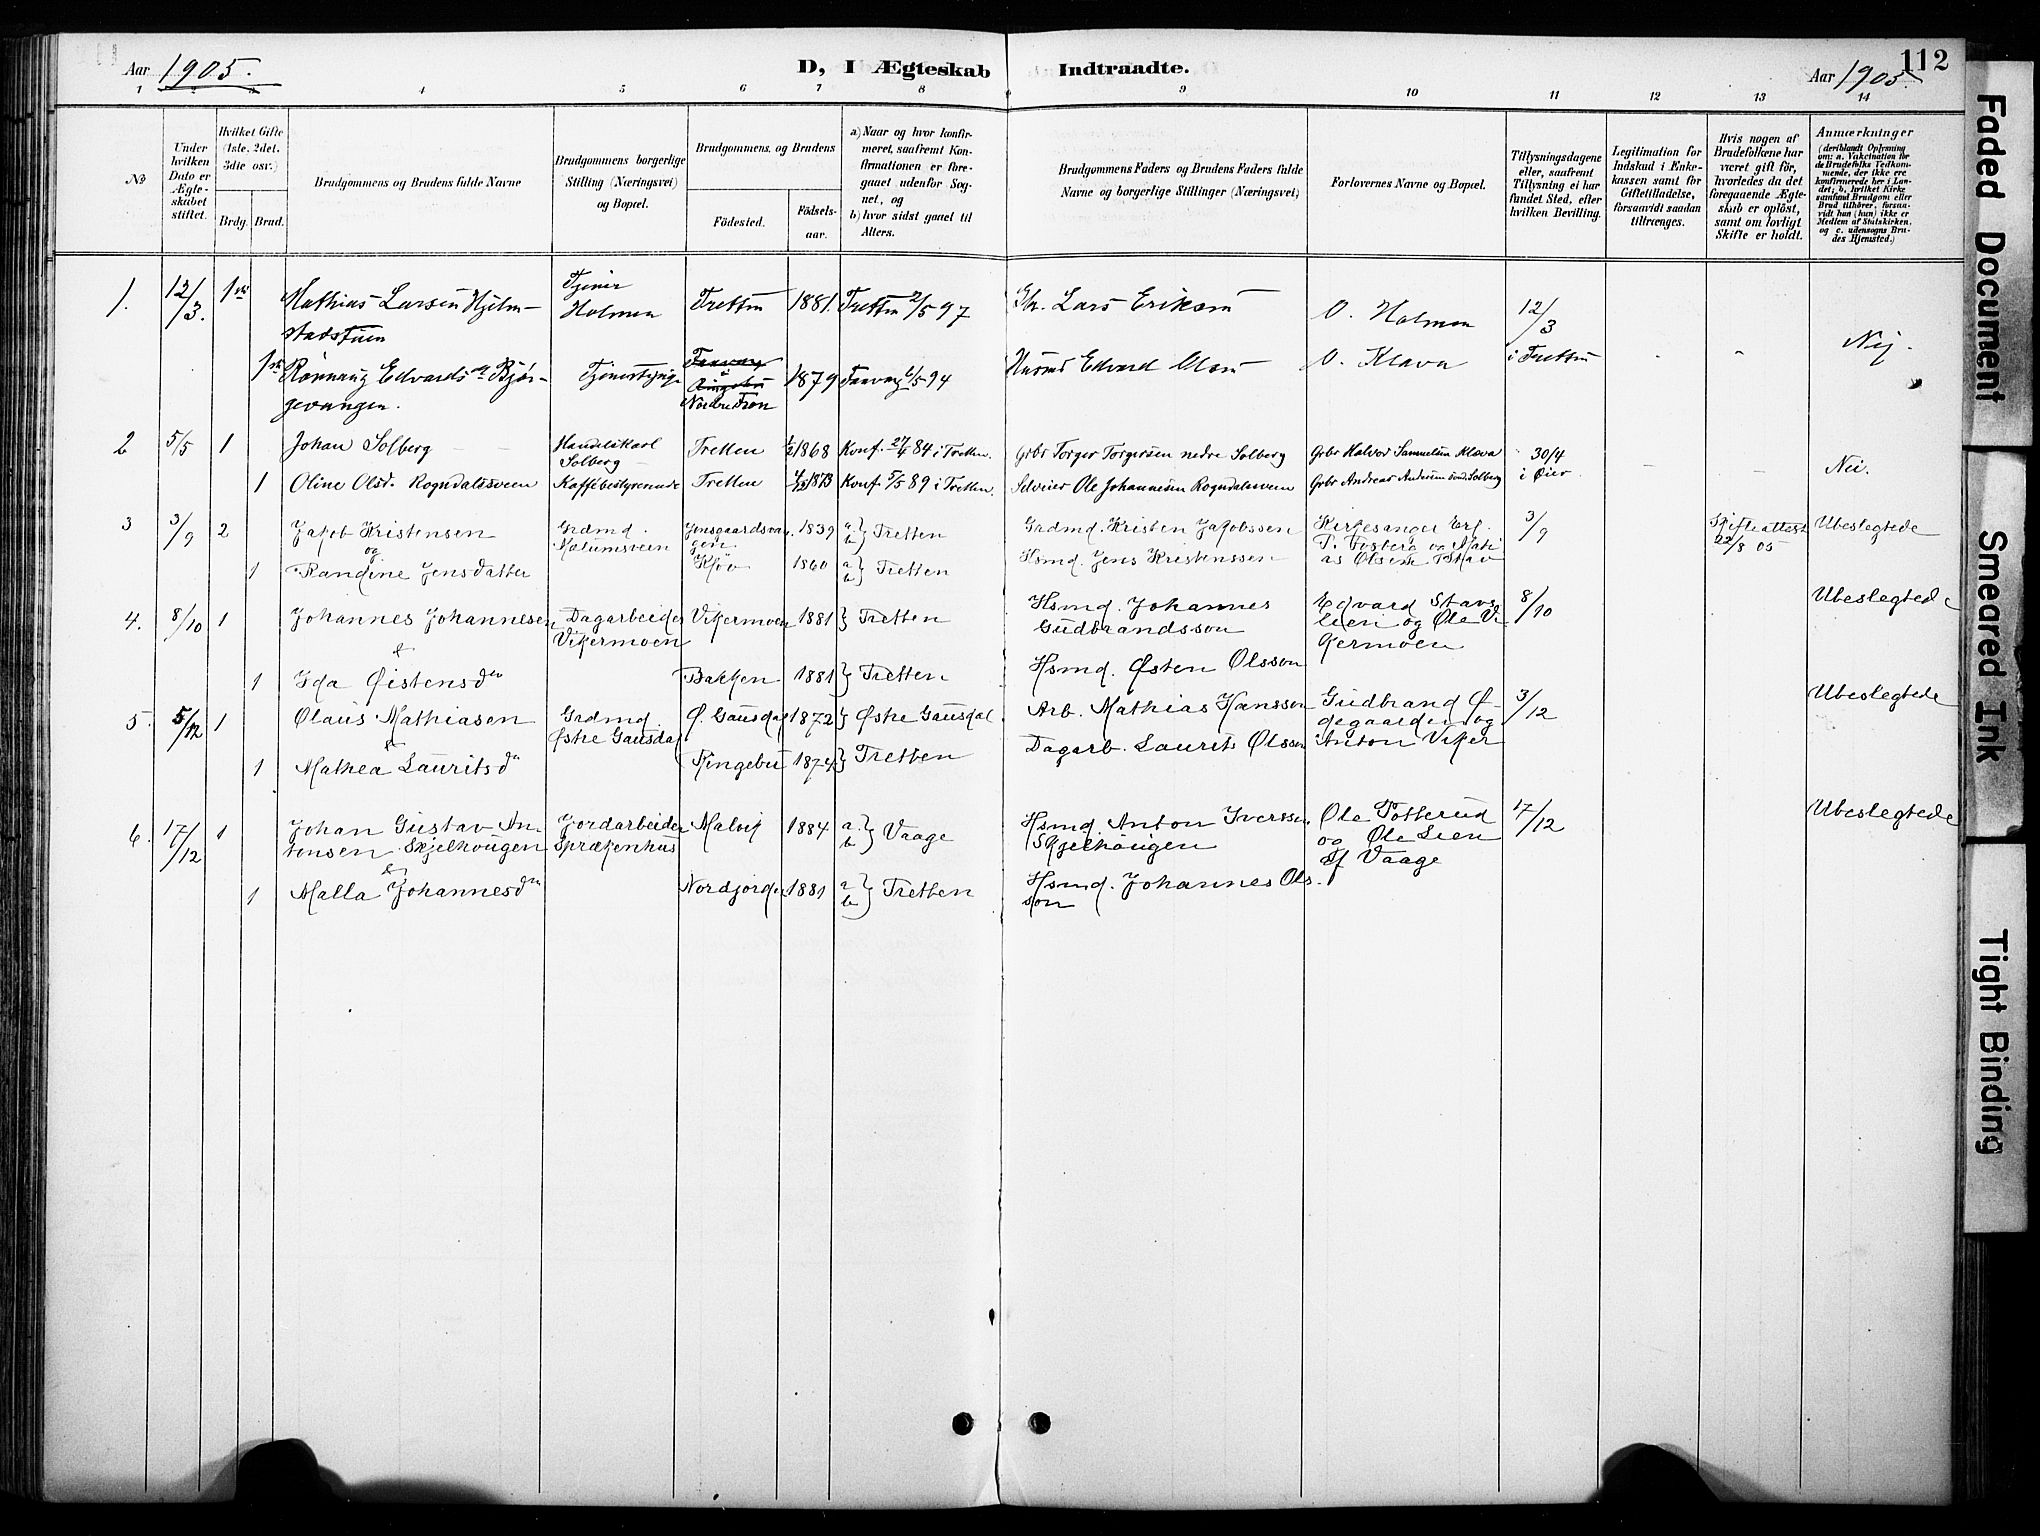 Aar 1905.
D, I Ægteskab Indtraadte.
Aar 1905.
112
1 2 3 4 5 6 7 8 9 10 11 12 13 14
№
Under hvilken Dato er Ægteskabet stiftet.
Hvilket Gifte (1ste, 2det, 3die osv.)
Brdg. Brud.
Brudgommens og Brudens fulde Navne
Brudgommens borgerlige Stilling (Næringsvei) og Bopæl.
Brudgommens, og Brudens
Födested.
Födselsaar.
a) Naar og hvor konfirmeret, saafremt Konfirmationen er foregaaet udenfor Sognet, og
b) hvor sidst gaaet til Alters.
Brudgommens Faders og Brudens Faders fulde Navne og borgerlige Stillinger (Næringsvei)
Forlovernes Navne og Bopæl.
Tillysningsdagene eller, saafremt Tillysning ei har fundet Sted, efter hvilken Bevilling.
Legitimation for Indskud i Enkekassen samt for Giftetilladelse, forsaavidt saadan tiltrænges.
Hvis nogen af Brudefolkene har været gift för, hvorledes da det foregaaende Ægteskab er oplöst, samt om lovligt Skifte er holdt.
Anmærkninger (deriblandt Oplysning om: a. Vakcination for de Brudefolks Vedkommende, der ikke ere konfirmerede her i Landet; b. hvilket Kirkesamfund Brudgom eller Brud tilhörer, forsaavidt han (hun) ikke er Medlem af Statskirken, og c. udensogns Brudes Hjemsted.)
1. 12/3. 1ste Mathias Larsen Hjelmstadstuen Tjener Holmen Tretten 1881. Tretten 2/5 97 Gbr. Lars Eriksen O. Holmen 12/3
1ste Rønnaug Edvardsdtr Bjørgevangen. Tjenestepige Faavang i Ringebu Nordre Fron 1879 Faavang 6/5 94 Husmd Edvard Olsen O. Klava i Tretten - - Nej.
2 5/5 1 Johan Solberg Handelskarl Solberg Tretten 1/2 1868 Konf. 27/4 84 i Tretten. Grbr Torger Torgersen nedre Solberg Grbr Halvor Samuelsen Klava 30/4
1 Oline Olsd. Rogndalssveen Kaffebestyrerinde Tretten 1873 Konf 5/5 89 i Tretten. Selveier Ole Johannesen Rogndalssveen Grbr Andreas Andersen Solberg i Øier - - Nei.
3 3/9 2 Jakob Kristensen Grdmd. Kalumsveen Jonsgaardsvangen 1839 a b } Tretten Grdmd. Kristen Jakobssen Kirkesanger Erl. P. Fosberg og Matias Olsen 3/9 Skifteattest 22/8 05 Ubeslegtede
og
1 Randine Jensdatter Kløv 1860 a b } Tretten Hsmd. Jens Kristenssen
4. 8/10 1 Johannes Johannesen Dagarbeider Vikermoen Vikermoen 1881 } Tretten Hsmd. Johannes Gudbrandsson Edvard Stavslien og Ole Vikermoen 8/10 Ubeslegtede
&
1 Ida Øistensdtr Bakken 1881 } Tretten Hsmd. Østen Olsson
5. 5/12 1 Olaus Mathiasen Grdmd. Østre Gausdal Ø. Gausdal 1872 } Østre Gausdal Arb. Mathias Hansson Gudbrand Ødegaarden og Anton Viker 3/12 Ubeslegtede
&
1 Mathea Lauritsdtr Ringebu 1874 } Tretten Dagarb. Laurits Olsson
6. 17/12 1 Johan Gustav Antonsen Skjelhougen Jordarbeider Sprækenhus Malvik 1884 a. b } Vaage Hsmd. Anton Iverssen Skjelhöugen Ole Totterud og Ole Lien af Vaage 17/12 Ubeslegtede
&
1 Malla Johannesdtr Nordjorde 1881 a b } Tretten Hsmd. Johannes Olsson
Faded Document
Smeared Ink
Tight Binding